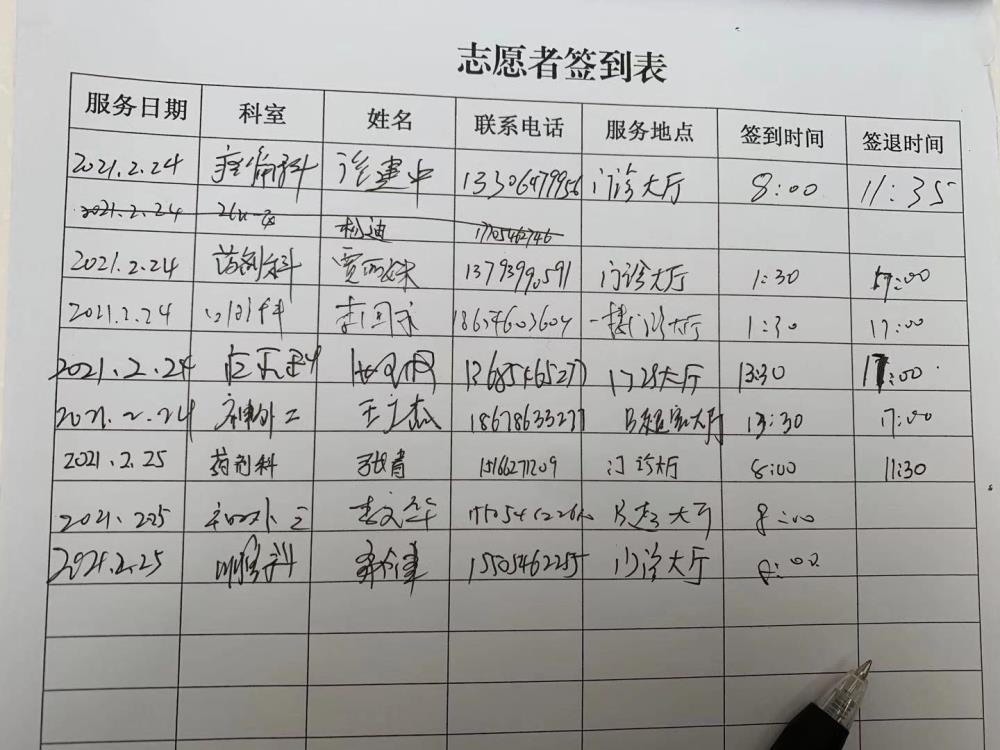 志愿者签到表
服务日期 科室 姓名 联系电话 服务地点 签到时间 签退时间
2021.2.24 疼痛科 建中 13306479956 门诊大厅 8:00 11:35
2021.2.24 杨迪 17705462746
2021.2.24 药剂科 贾西妹 13793990591 门诊大厅 1:30 17:00
2021.2.24 口腔科 李国永 18654603604 一楼门诊大厅 1:30 17:00
2021.2.24 13685465277 门诊大厅 13:30 17:00
2021.2.24 神外二 王立杰 18678633277 大厅 13:30 17:00
2021.2.25 药剂科 张青 15166271209 门诊大厅 8:00 11:30
2021.2.25 李文华 大厅 8:00
2021.2.25 15505462255 门诊大厅 8:00